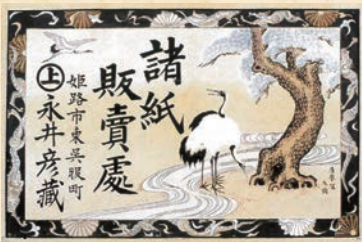 諸紙
販賣處
姫路市東呉服町
上永井彦藏